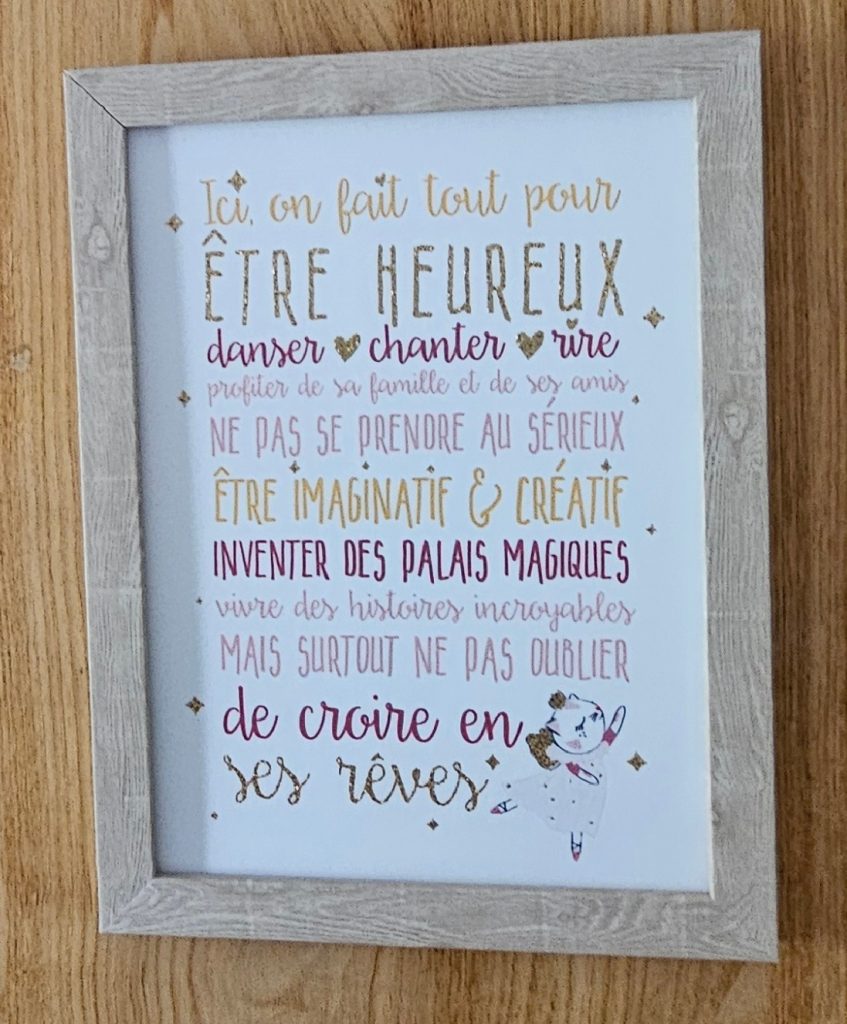 Ici, on fait tout pour
ÊTRE HEUREUX
danser chanter rire
profiter de sa famille et de ses amis
NE PAS SE PRENDRE AU SÉRIEUX
ÊTRE IMAGINATIF & CRÉATIF
INVENTER DES PALAIS MAGIQUES
vivre des histoires incroyables
MAIS SURTOUT NE PAS OUBLIER
de croire en
ses rêves